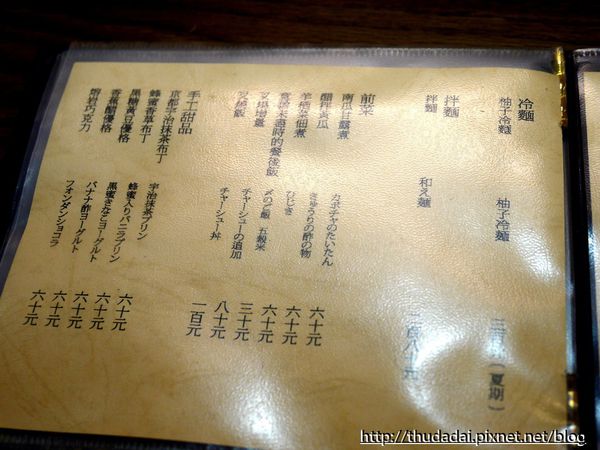 冷麵
柚子冷麵 柚子冷麺 三百 元(夏期)
拌麵
拌麵 和え麺 二百八十元
前菜
南瓜甘露煮 カボチャのたいたん 六十元
醋拌黃瓜 きゅうりの酢の物 六十元
羊栖菜佃煮 ひじき 六十元
當拉麵未過時的餐後飯 〆のご飯 五穀米 三十元
叉燒增量 チャーシューの追加 八十元
叉燒飯 チャーシュー丼 一百元
手工甜品
京都宇治抹茶布丁 宇治抹茶プリン 六十元
蜂蜜香草布丁 蜂蜜入りバニラプリン 六十元
黑糖黃豆優格 黒蜜きなこヨーグルト 六十元
香蕉醋優格 バナナ酢ヨーグルト 六十元
熔岩巧克力 フォンダンショコラ 六十元
http://thudadai.pixnet.net/blog